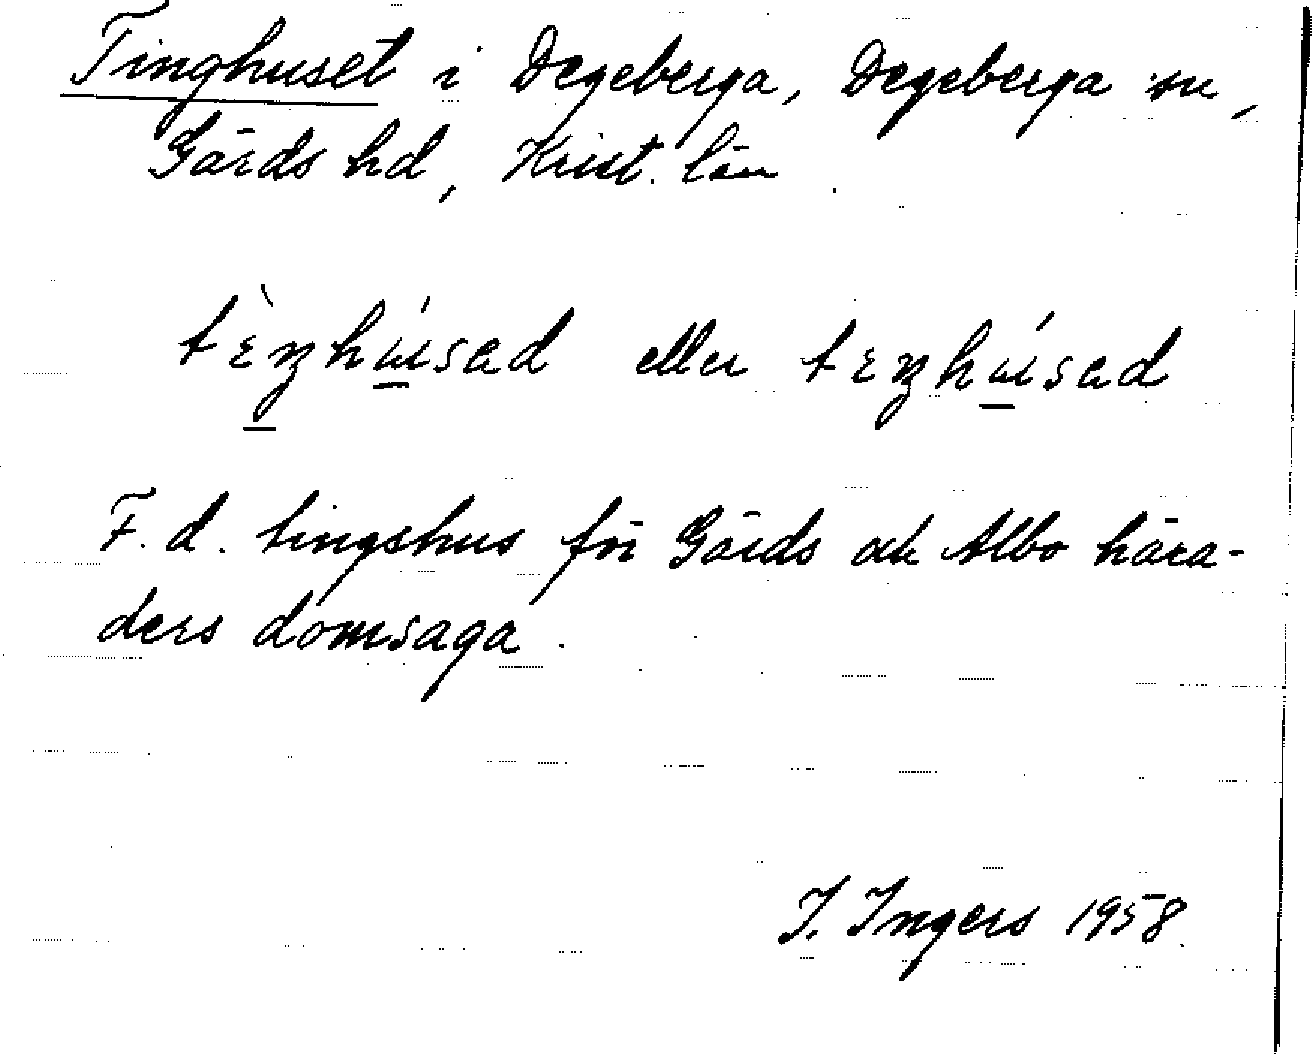 Tinghuset i Degeberga, Degeberga sn,
Gärds hd, Krist. län.
tɛ̀ŋhúsad eller tɛŋhúsad
F. d. tingshus för Gärds och Albo hära-
ders domsaga.
I. Ingers 1958.